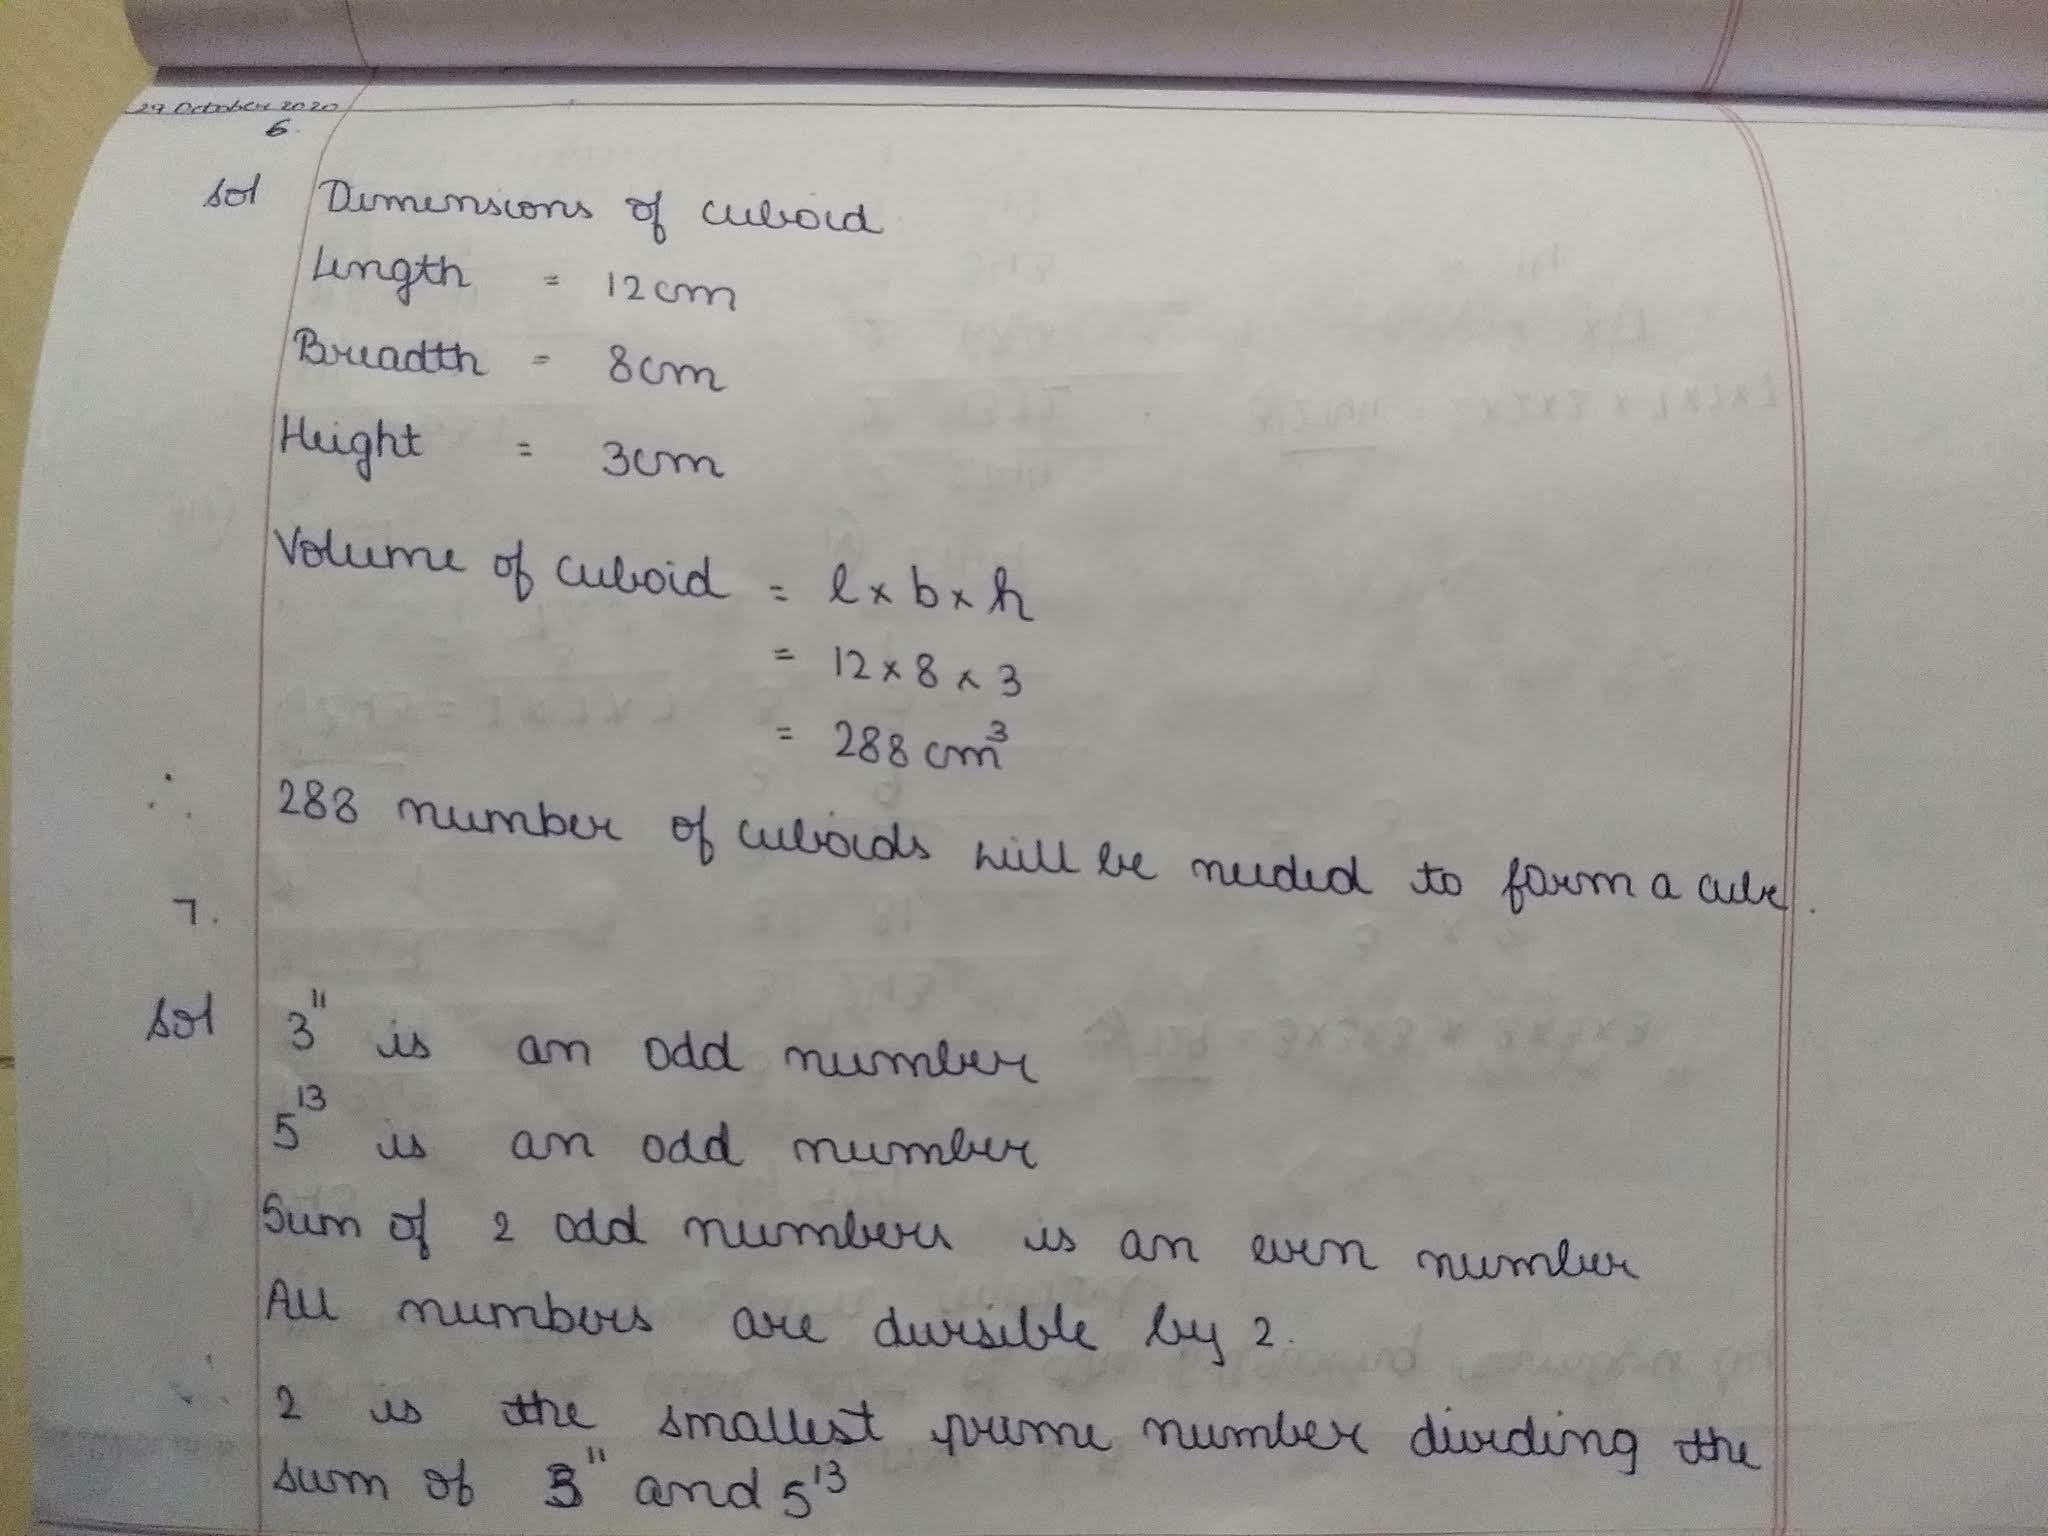 29 October 2020
6.
Sol Dimensions of cuboid
Length = 12cm
Breadth = 8cm
Height = 3cm
Volume of cuboid = l × b × h
= 12 × 8 × 3
= 288 cm³
∴ 288 number of cuboids will be needed to form a cube.
7.
Sol 3¹¹ is an odd number
5¹³ is an odd number
Sum of 2 odd numbers is an even number
All numbers are divisible by 2.
∴ 2 is the smallest prime number dividing the
sum of 3¹¹ and 5¹³